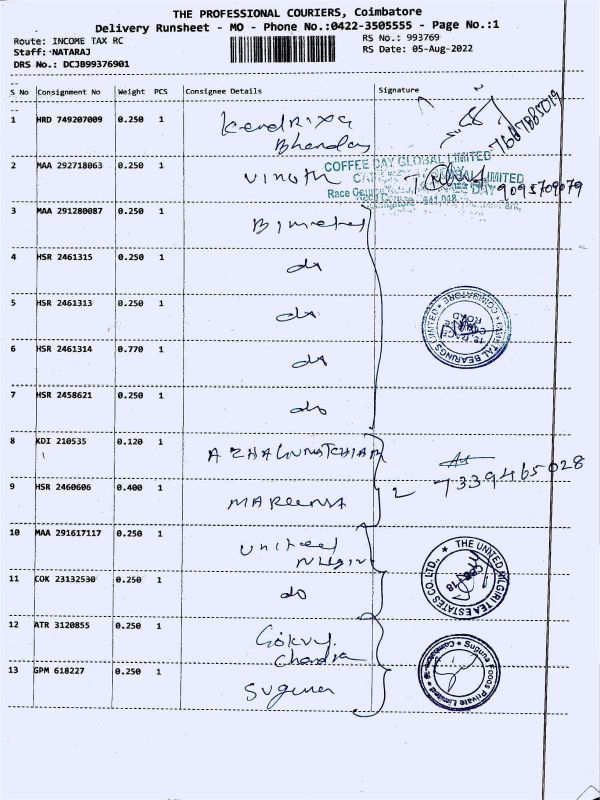 THE PROFESSIONAL COURIERS, Coimbatore
Delivery Runsheet - MO - Phone No.:0422-3505555 - Page No.:1
Route: INCOME TAX RC
RS No.: 993769
Staff: NATARAJ
RS Date: 05-Aug-2022
DRS No.: DCJB99376901
S No Consignment No Weight PCS Consignee Details Signature
1 HRD 749207009 0.250 1
Bhandar
7667885019
2 MAA 292718063 0.250 1 Vinoth
COFFEE DAY GLOBAL LIMITED
9095709079
3 MAA 291280087 0.250 1
4 HSR 2461315 0.250 1 do
5 HSR 2461313 0.250 1 do
6 HSR 2461314 0.770 1 do
7 HSR 2458621 0.250 1 do
8 KDI 210535 0.120 1
9 HSR 2460606 0.400 1
2 7339465028
10 MAA 291617117 0.250 1 United
Nilgiri
THE UNITED NILGIRI TEA ESTATES CO.LTD.,
11 COK 23132530 0.250 1 do
12 ATR 3120855 0.250 1
Chandra
13 GPM 618227 0.250 1 Suguna
Suguna Foods Private Limited